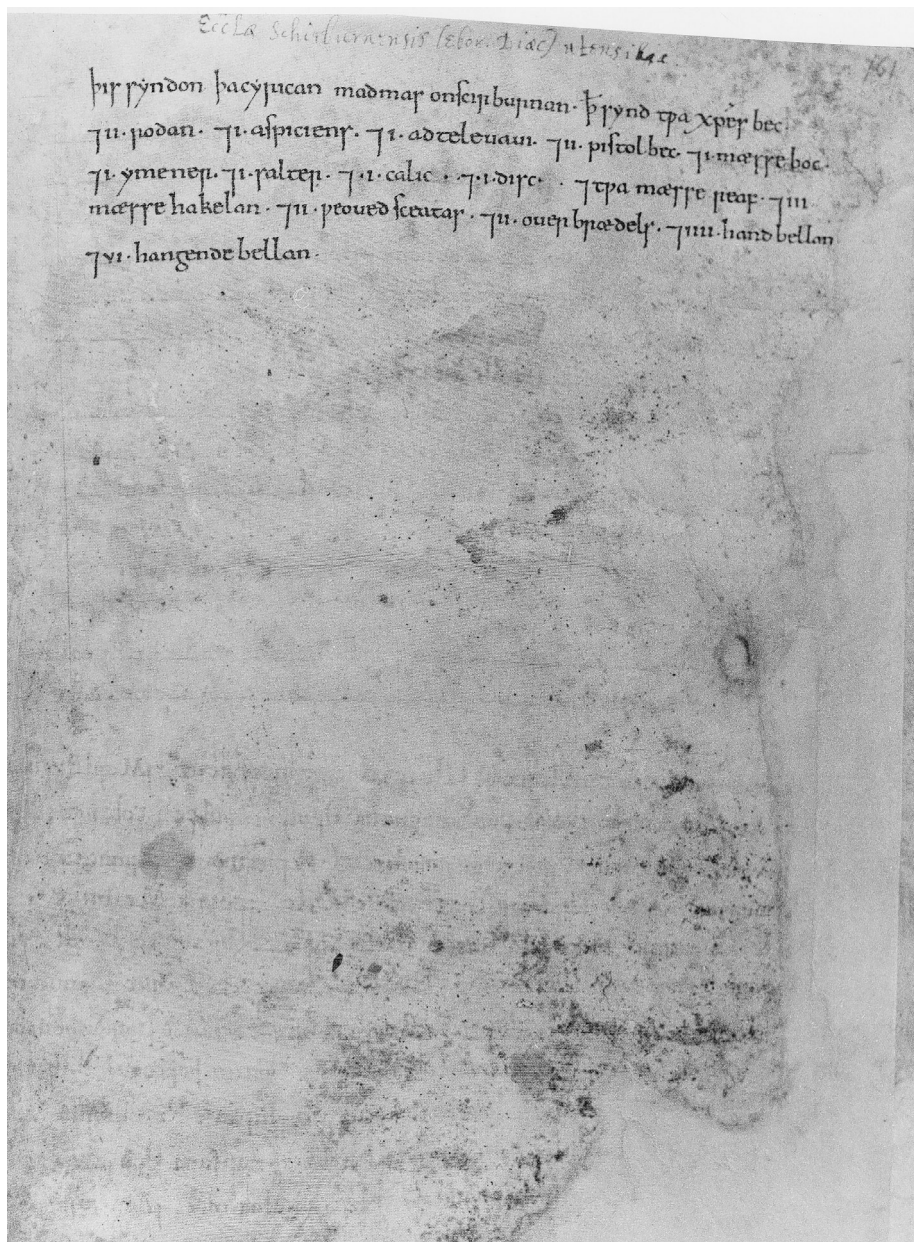 Eccłæ Schirburnensis (Ebor. Diæc) utensilia.
161
þis syndon þa cyrican madmas on scirburnan· ꝥ synd twa xp̄es bec·
⁊ii· rodan· ⁊i· aspiciens· ⁊i· adteleuaui· ⁊ii· pistol bec· ⁊i· mæsse boc·
⁊i· ymener· ⁊i· salter· ⁊·i· calic· ⁊·i· disc· ⁊ twa mæsse reaf· ⁊iii·
mæsse hakelan· ⁊ii· weoved sceatas· ⁊ii· ouer brædels· ⁊iiii· hand bellan
⁊vi· hangende bellan·